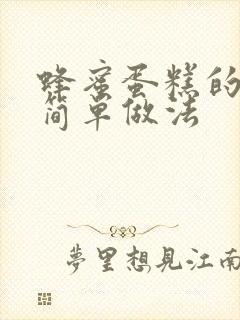 蜂蜜蛋糕的
简单做法
夢里想見江南